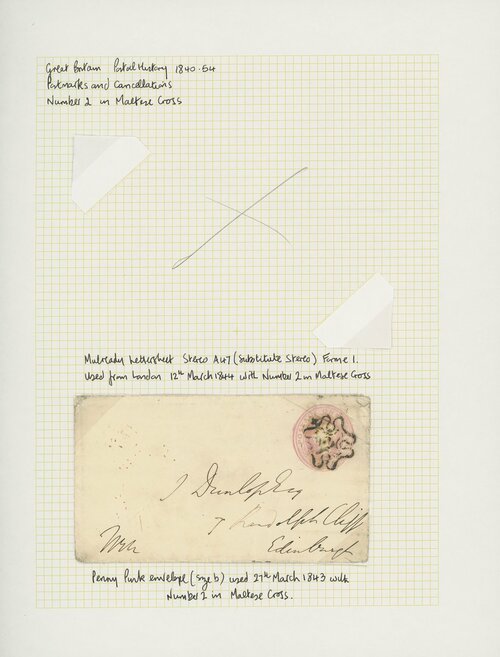 Great Britain Postal History 1840-54
Postmarks and Cancellations
Number 2 in Maltese Cross
Mulready Lettersheet Stereo A47 (substitute stereo) Forme 1.
Used from London 12th March 1844 with Number 2 in Maltese Cross
J Dunlop Esq
7 Randolph Cliff
Edinburgh
Penny Pink envelope (size b) used 27th March 1843 with
Number 2 in Maltese Cross.